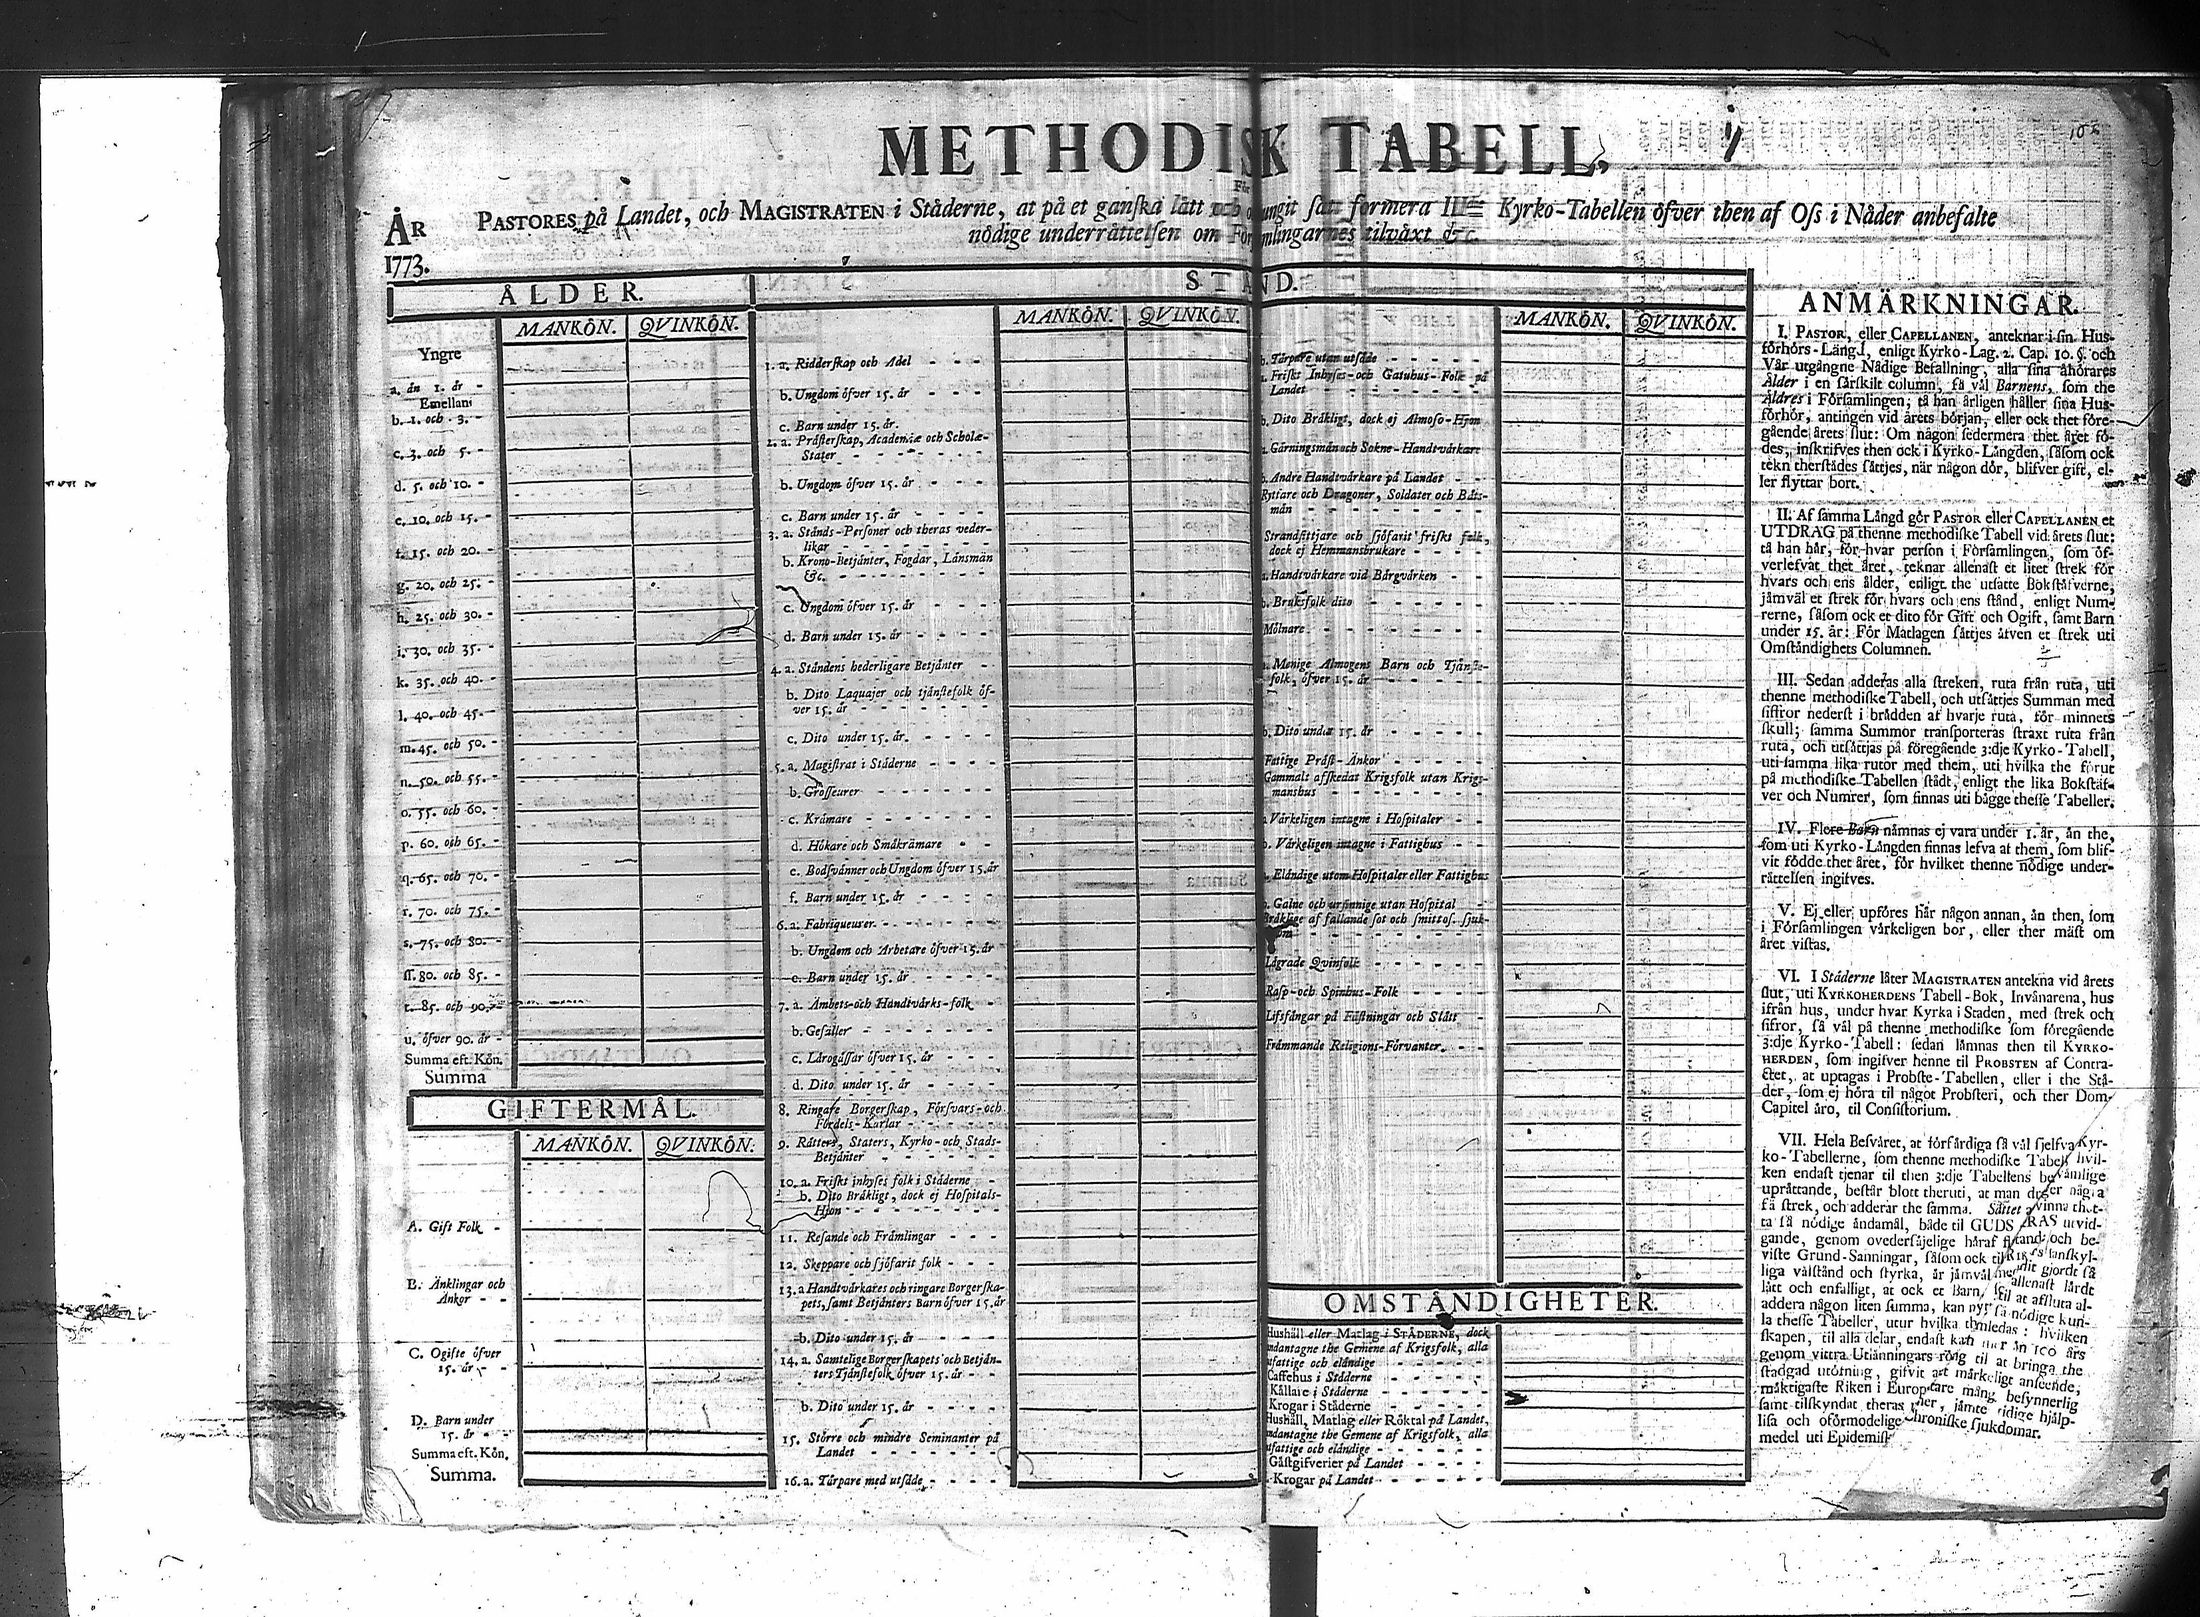 METHODISK TABELL,
För
PASTORES på Landet, och MAGISTRATEN i Städerne, at på et ganska lätt och otvungit sätt formera III Kyrko-Tabellen öfver then af Oss i Nåder anbefalte
nödige underrättelsen om Församlingarnes tilväxt &c.
ÅR
1773.
ÅLDER.
MANKÖN. QVINKÖN.
Yngre
a. än 1. år -
Emellan
b. 1. och 3. -
c. 3. och 5. -
d. 5. och 10. -
e. 10. och 15. -
f. 15. och 20. -
g. 20. och 25. -
h. 25. och 30. -
i. 30. och 35. -
k. 35. och 40. -
l. 40. och 45. -
m. 45. och 50. -
n. 50. och 55. -
o. 55. och 60. -
p. 60. och 65. -
q. 65. och 70. -
r. 70. och 75. -
s. 75. och 80. -
ss. 80. och 85. -
t. 85. och 90. -
u. öfver 90. år -
Summa eft. Kön.
Summa
GIFTERMÅL.
MANKÖN. QVINKÖN.
A. Gift Folk -
B. Änklingar och
Änkor - -
C. Ogifte öfver
15. år - -
D. Barn under
15. år -
Summa eft. Kön.
Summa.
STÅND.
MANKÖN. QVINKÖN.
1. a. Ridderskap och Adel - - -
b. Ungdom öfver 15. år - - - -
c. Barn under 15. år.
2. a. Prästerskap, Academiæ och Scholæ-
Stater - - - - - -
b. Ungdom öfver 15. år - - - -
c. Barn under 15. år - - - - -
3. a. Stånds-Personer och theras veder-
likar - - - - - - -
b. Krono-Betjänter, Fogdar, Länsmän
&c. - - - - - - -
c. Ungdom öfver 15. år - - - -
d. Barn under 15. år - - - - -
4. a. Ståndens hederligare Betjänter -
b. Dito Laquajer och tjänstefolk öf-
ver 15. år - - - - - -
c. Dito under 15. år. - - - -
5. a. Magistrat i Städerne - - - -
b. Grosseurer - - - - - -
c. Krämare - - - - - -
d. Hökare och Småkrämare - -
e. Bodsvänner och Ungdom öfver 15. år
f. Barn under 15. år - - - -
6. a. Fabriqueurer. - - - - -
b. Ungdom och Arbetare öfver 15. år
c. Barn under 15. år - - - -
7. a. Ämbets-och Handtvärks-folk -
b. Gesäller - - - - - -
c. Lärogåssar öfver 15. år - - -
d. Dito under 15. år - - - -
8. Ringare Borgerskap, Försvars-och
Fördels-Karlar - - - - -
9. Rätters, Staters, Kyrko-och Stads-
Betjänter - - - - - -
10. a. Friskt inhyses folk i Städerne -
b. Dito Bräkligt, dock ej Hospitals-
Hjon - - - - - - -
11. Resande och Främlingar - - -
12. Skeppare och sjöfarit folk - - -
13. a Handtvärkares och ringare Borgerska-
pets, samt Betjänters Barn öfver 15. år
b. Dito under 15. år - - - -
14. a. Samtelige Borgerskapets och Betjän-
ters Tjänstefolk öfver 15. år - -
b. Dito under 15. år - - - -
15. Större och mindre Seminanter på
Landet - - - - - - -
16. a. Tärpare med utsäde - - - -
MANKÖN. QVINKÖN.
b. Tärpare utan utsäde - - - - -
Friskt Inhyses-och Gatuhus-Folk på
Landet - - - - - -
b. Dito Bräkligt, dock ej Almoso-Hjon
Gärningsmän och Sokne-Handtvärkare
b. Andre Handtvärkare på Landet - -
Ryttare och Dragoner, Soldater och Båts-
män - - - - - - -
Strandsittjare och sjöfarit friskt folk,
dock ej Hemmansbrukare - - - -
Handtvärkare vid Bärgvärken - -
b. Bruksfolk dito - - - - - -
Mölnare - - - - - - -
Menige Almogens Barn och Tjänste-
folk, öfver 15. år - - - - -
b. Dito under 15. år - - - - -
Fattige Präst-Änkor - - - -
Gammalt afskedat Krigsfolk utan Krigs-
manshus - - - - - - -
Värkeligen intagne i Hospitaler - -
b. Värkeligen intagne i Fattighus - -
Eländige utom Hospitaler eller Fattighus
Galne och ursinnige utan Hospital -
Bräklige af fallande sot och smittos. sjuk-
dom - - - - - -
Lägrade Qvinfolk - - - - -
Rasp-och Spinhus-Folk - - - -
Lifsfångar på Fästningar och Slått -
Främmande Religions-Förvanter. - -
OMSTÄNDIGHETER.
Hushåll eller Matlag i STÄDERNE, dock
undantagne the Gemene af Krigsfolk, alla
utfattige och eländige - - - - -
Caffehus i Städerne - - - - -
Källare i Städerne - - - - -
Krogar i Städerne - - - - -
Hushåll, Matlag eller Röktal på Landet,
undantagne the Gemene af Krigsfolk, alla
utfattige och eländige - - - - -
Gästgifverier på Landet - - - -
Krogar på Landet - - - - -
ANMÄRKNINGAR.
I. PASTOR, eller CAPELLANEN, anteknar i sin Hus-
förhörs-Längd, enligt Kyrko-Lag. 2. Cap. 10. §. och
Vår utgångne Nådige Befallning, alla sina åhörares
Ålder i en särskilt column, så väl Barnens, som the
Äldres i Församlingen; tå han årligen håller sina Hus-
förhör, antingen vid årets början, eller ock thet före-
gående årets slut: Om någon sedermera thet året fö-
des, inskrifves then ock i Kyrko-Längden, såsom ock
tekn therstädes sättjes, när någon dör, blifver gift, el-
ler flyttar bort.
II. Af samma Längd gör PASTOR eller CAPELLANEN et
UTDRAG på thenne methodiske Tabell vid årets slut:
tå han här, för hvar person i Församlingen, som öf-
verlefvat thet året, teknar allenast et litet strek för
hvars och ens ålder, enligt the utsatte Bokstäfverne,
jämväl et strek för hvars och ens stånd, enligt Num-
rerne, såsom ock et dito för Gift och Ogift, samt Barn
under 15. år: För Matlagen sättjes åtven et strek uti
Omständighets Columnen.
III. Sedan adderas alla streken, ruta från ruta, uti
thenne methodiske Tabell, och utsättjes Summan med
siffror nederst i brädden af hvarje ruta, för minnets
skull; samma Summor transporteras straxt ruta från
ruta, och utsättjas på föregående 3:dje Kyrko-Tabell,
uti samma lika rutor med them, uti hvilka the förut
på methodiske Tabellen städt, enligt the lika Bokstäf-
ver och Numrer, som finnas uti bägge thesse Tabeller.
IV. Flere Barn nämnas ej vara under 1. år, än the,
som uti Kyrko-Längden finnas lefva af them, som blif-
vit födde thet året, för hvilket thenne nödige under-
rättelsen ingifves.
V. Ej eller upföres här någon annan, än then, som
i Församlingen värkeligen bor, eller ther mäst om
året vistas.
VI. I Städerne låter MAGISTRATEN antekna vid årets
slut, uti KYRKOHERDENS Tabell-Bok, Invånarena, hus
ifrån hus, under hvar Kyrka i Staden, med strek och
sifror, så väl på thenne methodiske som föregående
3:dje Kyrko-Tabell: sedan lämnas then til KYRKO-
HERDEN, som ingifver henne til PROBSTEN af Contra-
ctet, at uptagas i Probste-Tabellen, eller i the Stä-
der, som ej höra til något Probsteri, och ther Dom-
Capitel äro, til Consistorium.
VII. Hela Besväret, at förfärdiga så väl sjelfva Kyr-
ko-Tabellerne, som thenne methodiske Tabell hvil-
ken endast tjenar til then 3:dje Tabellens beqvämlige
uprättande, består blott theruti, at man drger några
få strek, och adderar the samma. Sättet vinna thet-
ta så nödige ändamål, både til GUDS ÄRAS utvid-
gande, genom ovedersäjelige häraf och be-
viste Grund-Sanningar, såsom ock til
liga välstånd och styrka, är jämväl gjordt så
lätt och enfalligt, at ock et Barn, allenast lärdt
addera någon liten summa, kan til at afsluta al-
la thesse Tabeller, utur hvilka så nödige kun-
skapen, til alla delar, endast kan hvilken
genom vittra Utlänningars mer än 100 års
stadgad utötning, gifvit til at bringa the
mäktigaste Riken i Europ märkeligt anseende,
samt tilskyndat theras mång besynnerlig
lisa och oförmodelige jämte tidige hjälp-
medel uti Epidemis chroniske sjukdomar.